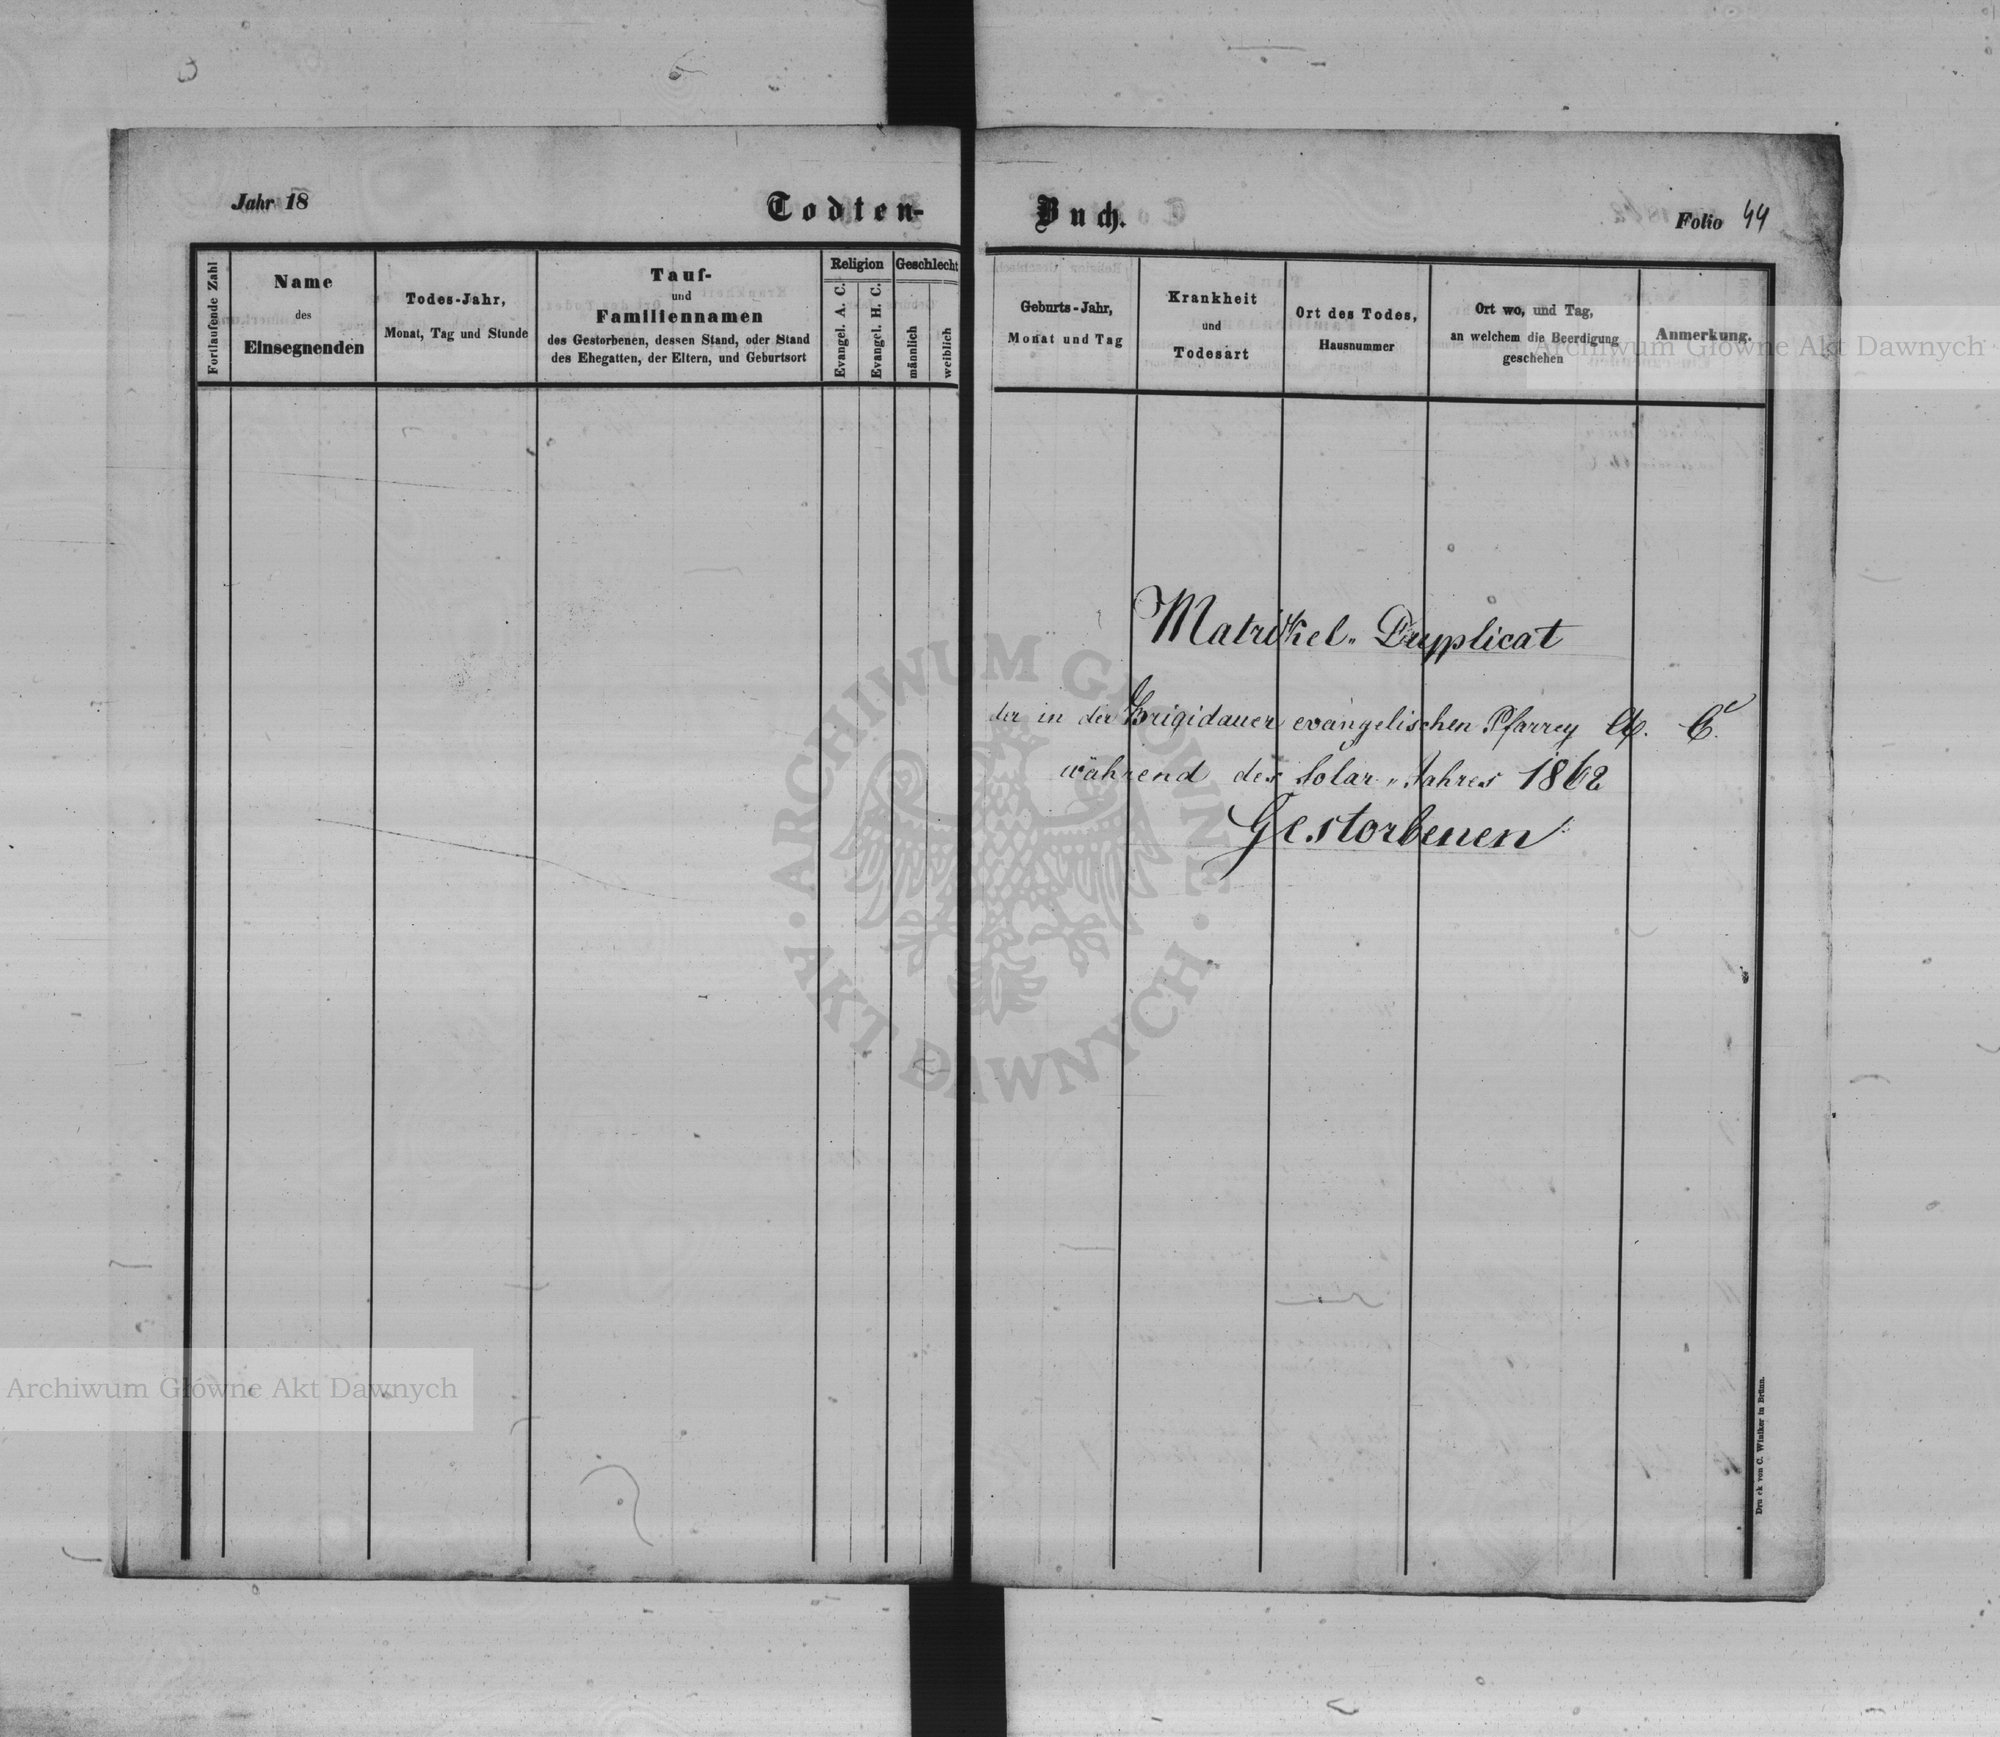 Jahr 18
Todten-
Buch.
Folio 44
Fortlaufende Zahl
Name
des
Einsegnenden
Todes-Jahr,
Monat, Tag und Stunde
Tauf-
und
Familiennamen
des Gestorbenen, dessen Stand, oder Stand
des Ehegatten, der Eltern, und Geburtsort
Religion
Evangel. A. C.
Evangel. H. C.
Geschlecht
männlich
weiblich
Geburts-Jahr,
Monat und Tag
Krankheit
und
Todesart
Ort des Todes,
Hausnummer
Ort wo, und Tag,
an welchem die Beerdigung
geschehen
Anmerkung.
Matrikel" Dupplicat
der in der Brigidauer evangelischen Pfarrey A. C.
während des Solar" Jahres 1862
Gestorbenen
Druck von C. Winiker in Brünn.
ARCHIWUM GŁÓWNE
AKT DAWNYCH
Archiwum Główne Akt Dawnych
Archiwum Główne Akt Dawnych